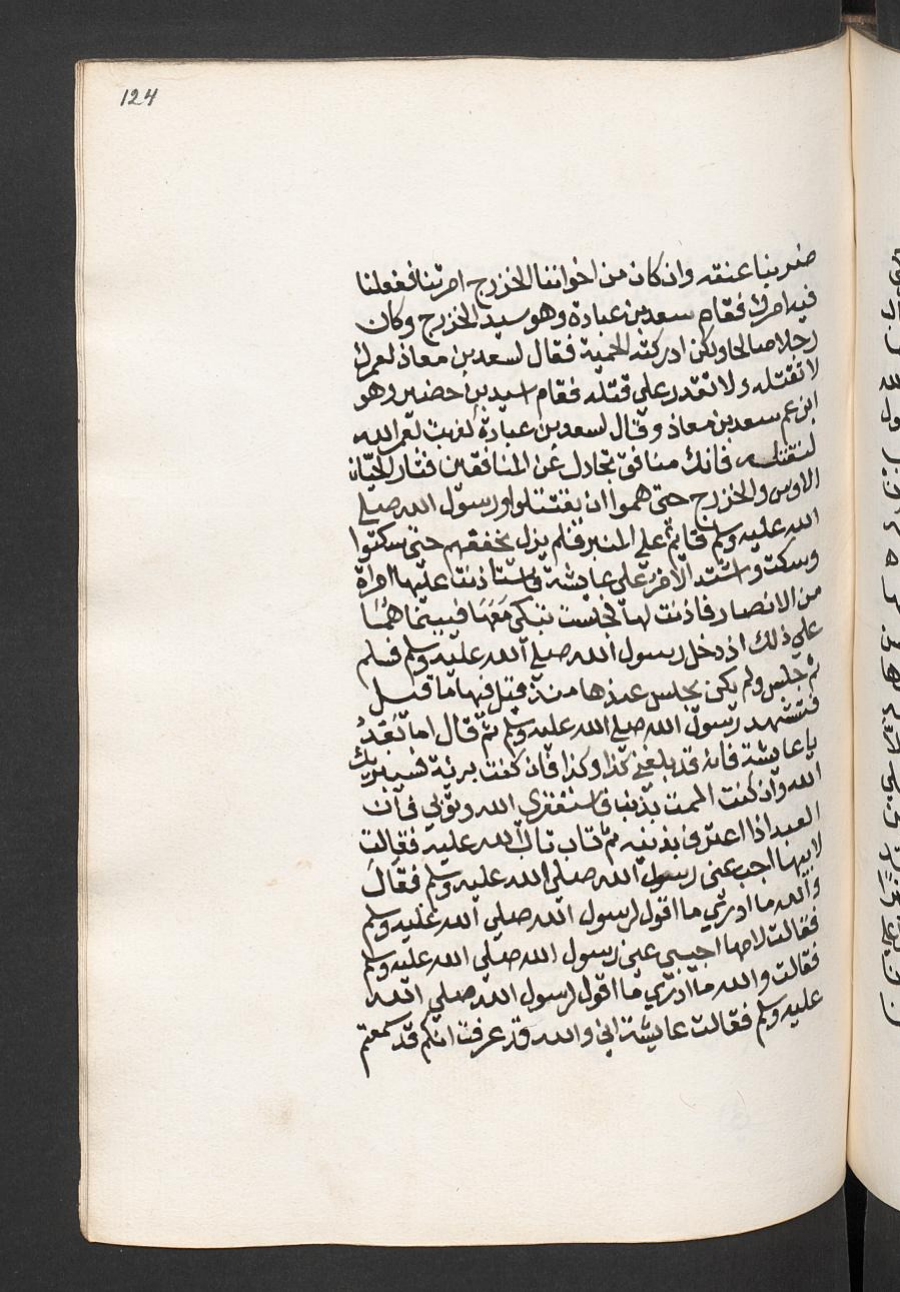 124
ضربنا عنقه وان كان من اخواننا الخزرج امرتنا ففعلنا
فيه امرك فقام سعد بن عبادة وهو سيد الخزرج وكان
رجلا صالحا ولكن ادركته الحمية فقال لسعد بن معاذ لعمرك
لا تقتله ولا تقدر على قتله فقام اسيد بن حضير وهو
ابن عم سعد بن معاذ وقال لسعد بن عبادة كذبت لعمر الله
لنقتلنه فانك منافق تجادل عن المنافقين فثار الحيان
الاوس والخزرج حتى هموا ان يقتتلوا ورسول الله صلى
الله عليه وسلم قايم على المنبر فلم يزل يخفضهم حتى سكتوا
وسكت واشتد الامر على عايشة فاستاذنت عليها امراة
من الانصار فاذنت لها فجلست تبكي معها فبينما هما
على ذلك اذ دخل رسول الله صلى الله عليه وسلم فسلم
ثم جلس ولم يكن يجلس عندها منذ قيل فيها ما قيل
فتشهد رسول الله صلى الله عليه وسلم ثم قال اما بعد
يا عايشة فانه قد بلغني كذا وكذا فان كنت برية فسيبريك
الله وان كنت الممت بذنب فاستغفري الله وتوبي فان
العبد اذا اعترف بذنبه ثم تاب تاب الله عليه فقالت
لابيها اجب عني رسول الله صلى الله عليه وسلم فقال
والله ما ادري ما اقول لرسول الله صلى الله عليه وسلم
فقالت لامها اجيبي عني رسول الله صلى الله عليه وسلم
فقالت والله ما ادري ما اقول لرسول الله صلى الله
عليه وسلم فقالت عايشة اني والله قد عرفت انكم قد سمعتم